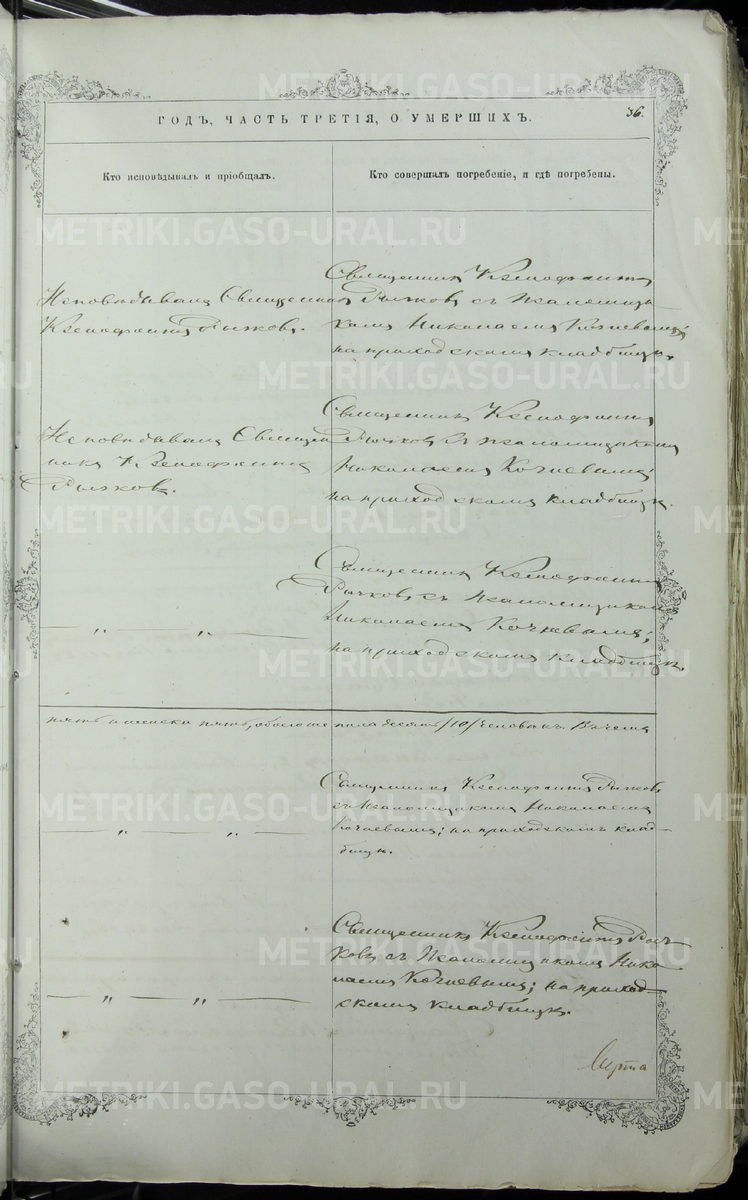 METRIKI.GASO-URAL.RU
36.
ГОДЪ, ЧАСТЬ ТРЕТІЯ, О УМЕРШИХЪ.
Кто исповѣдывалъ и пріобщалъ.
Кто совершалъ погребеніе, и гдѣ погребены.
Исповѣдывалъ Священникъ
Ксенофонтъ Рычковъ.
Священникъ Ксенофонтъ
Рычковъ съ Псаломщи-
комъ Николаемъ Кочневымъ;
на приходскомъ кладбищѣ.
Исповѣдывалъ Священ-
никъ Ксенофонтъ
Рычковъ.
Священникъ Ксенофонтъ
Рычковъ съ псаломщикомъ
Николаемъ Кочневымъ;
на приходскомъ кладбищѣ.
— „ — „ —
Священникъ Ксенофонтъ
Рычковъ съ Псаломщикомъ
Николаемъ Кочневымъ;
на приходскомъ кладбищѣ.
пять а женска пять, обоего же пола десять /10/ человѣкъ.
— „ — „ —
Священникъ Ксенофонтъ Рычковъ
съ Псаломщикомъ Николаемъ
Кочневымъ; на приходскомъ клад-
бищѣ.
— „ — „ —
Священникъ Ксенофонтъ Рыч-
ковъ съ Псаломщикомъ Нико-
лаемъ Кочневымъ; на приход-
скомъ кладбищѣ.